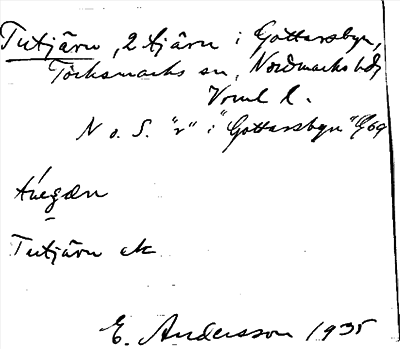 Tutjärn, 2 tjärn i Gottarsbyn,
Töcksmarks sn, Nordmarks hd,
Vrml l.
N o. S. "r" i "Gottarsbyn" G69
Tutjärn ek
E. Andersson 1935